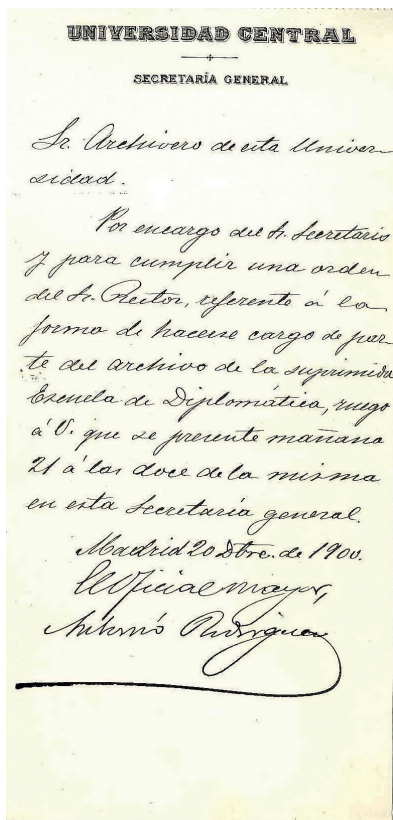 UNIVERSIDAD CENTRAL
SECRETARÍA GENERAL
Sr. Archivero de esta Univer-
sidad.
Por encargo del Sr. Secretario
y para cumplir una orden
del Sr. Rector, referente á la
forma de hacerse cargo de par-
te del archivo de la suprimida
Escuela de Diplomática, ruego
á V. que se presente mañana
21 á las doce de la misma
en esta Secretaría general.
Madrid 20 Dbre. de 1900.
El Oficial mayor,
Antonio Rodriguez